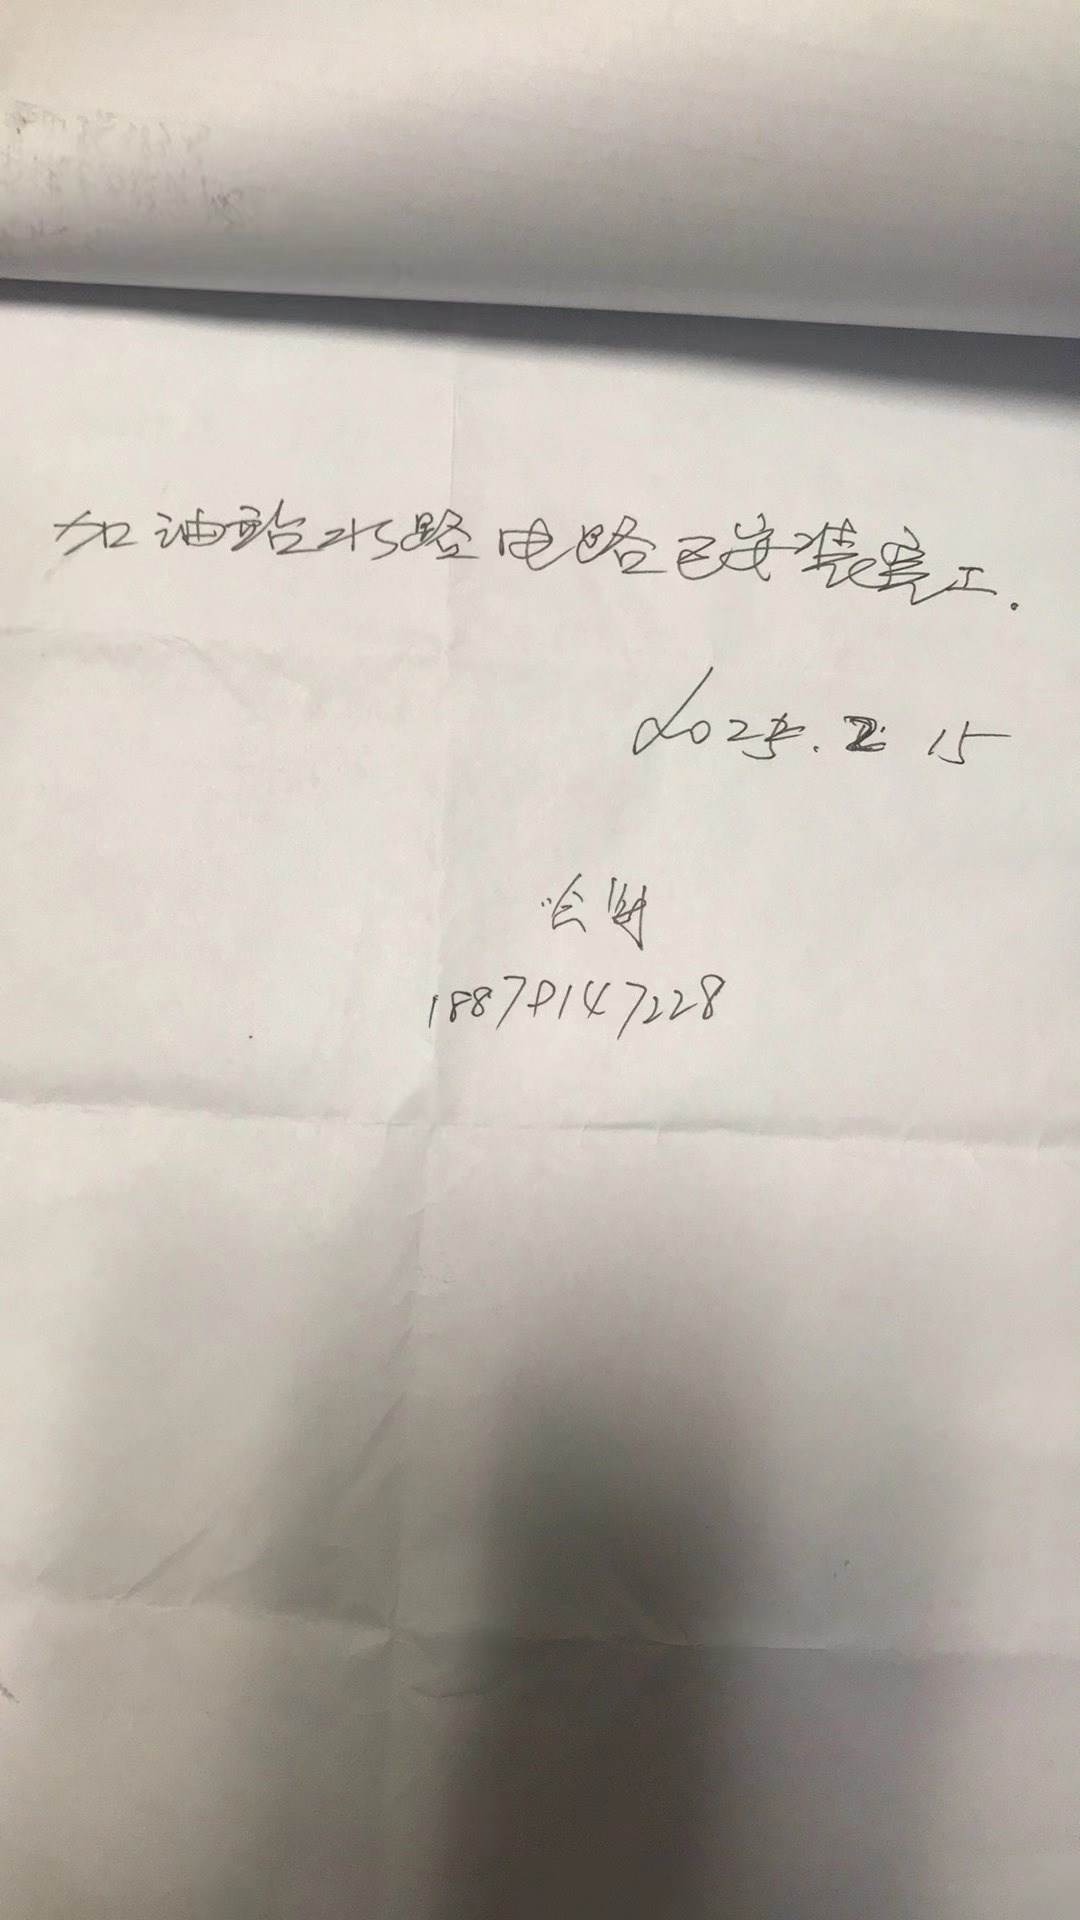 加油站水路电路已安装完工.
2025.2.15
18879147228